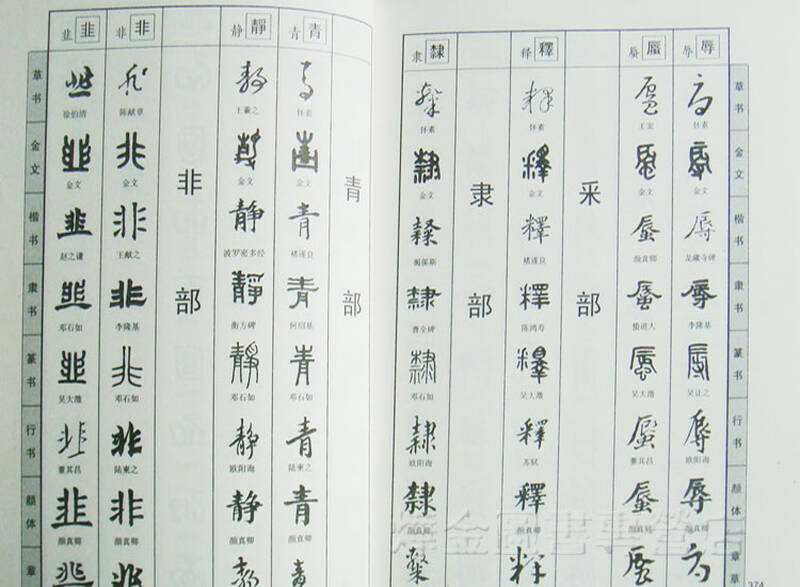 草书
金文
楷书
隶书
篆书
行书
颜体
章草
辱 辱
怀素
金文
龙藏寺碑
李隆基
吴让之
欧阳询
颜真卿
蜃 蜃
王宠
金文
颜真卿
吴大澂
董其昌
颜真卿
釆部
释 釋
怀素
金文
褚遂良
陈鸿寿
吴大澂
苏轼
颜真卿
隶部
隶 隸
怀素
金文
曹全碑
邓石如
欧阳询
颜真卿
374
青部
青 青
怀素
金文
褚遂良
何绍基
邓石如
陆柬之
颜真卿
静 靜
王羲之
金文
波罗密多经
衡方碑
邓石如
欧阳询
颜真卿
非部
非 非
陈献章
金文
王献之
李隆基
邓石如
陆柬之
颜真卿
韭 韭
徐伯清
金文
赵之谦
邓石如
吴大澂
董其昌
颜真卿
草书
金文
楷书
隶书
篆书
行书
颜体
章